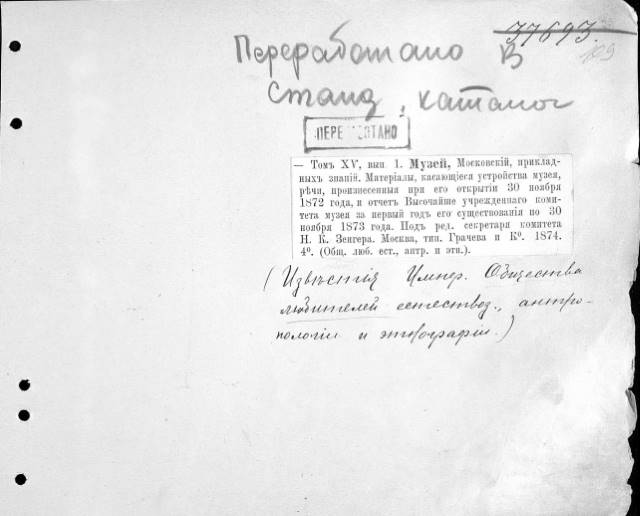 37693.
Переработано в
станд. каталог
— Томъ XV, вып. 1. Музей, Московскій, приклад-
ныхъ знаній. Матеріалы, касающіеся устройства музея,
рѣчи, произнесенныя при его открытіи 30 ноября
1872 года, и отчет Высочайше учрежденнаго коми-
тета музея за первый годъ его существованія по 30
ноября 1873 года. Подъ ред. секретаря комитета
Н. К. Зенгера. Москва, тип. Грачева и Кº. 1874.
4º. (Общ. люб. ест., антр. и этн.).
(Извѣстія Импер. Общества
любителей естествоз., антро-
пологіи и этнографіи.)